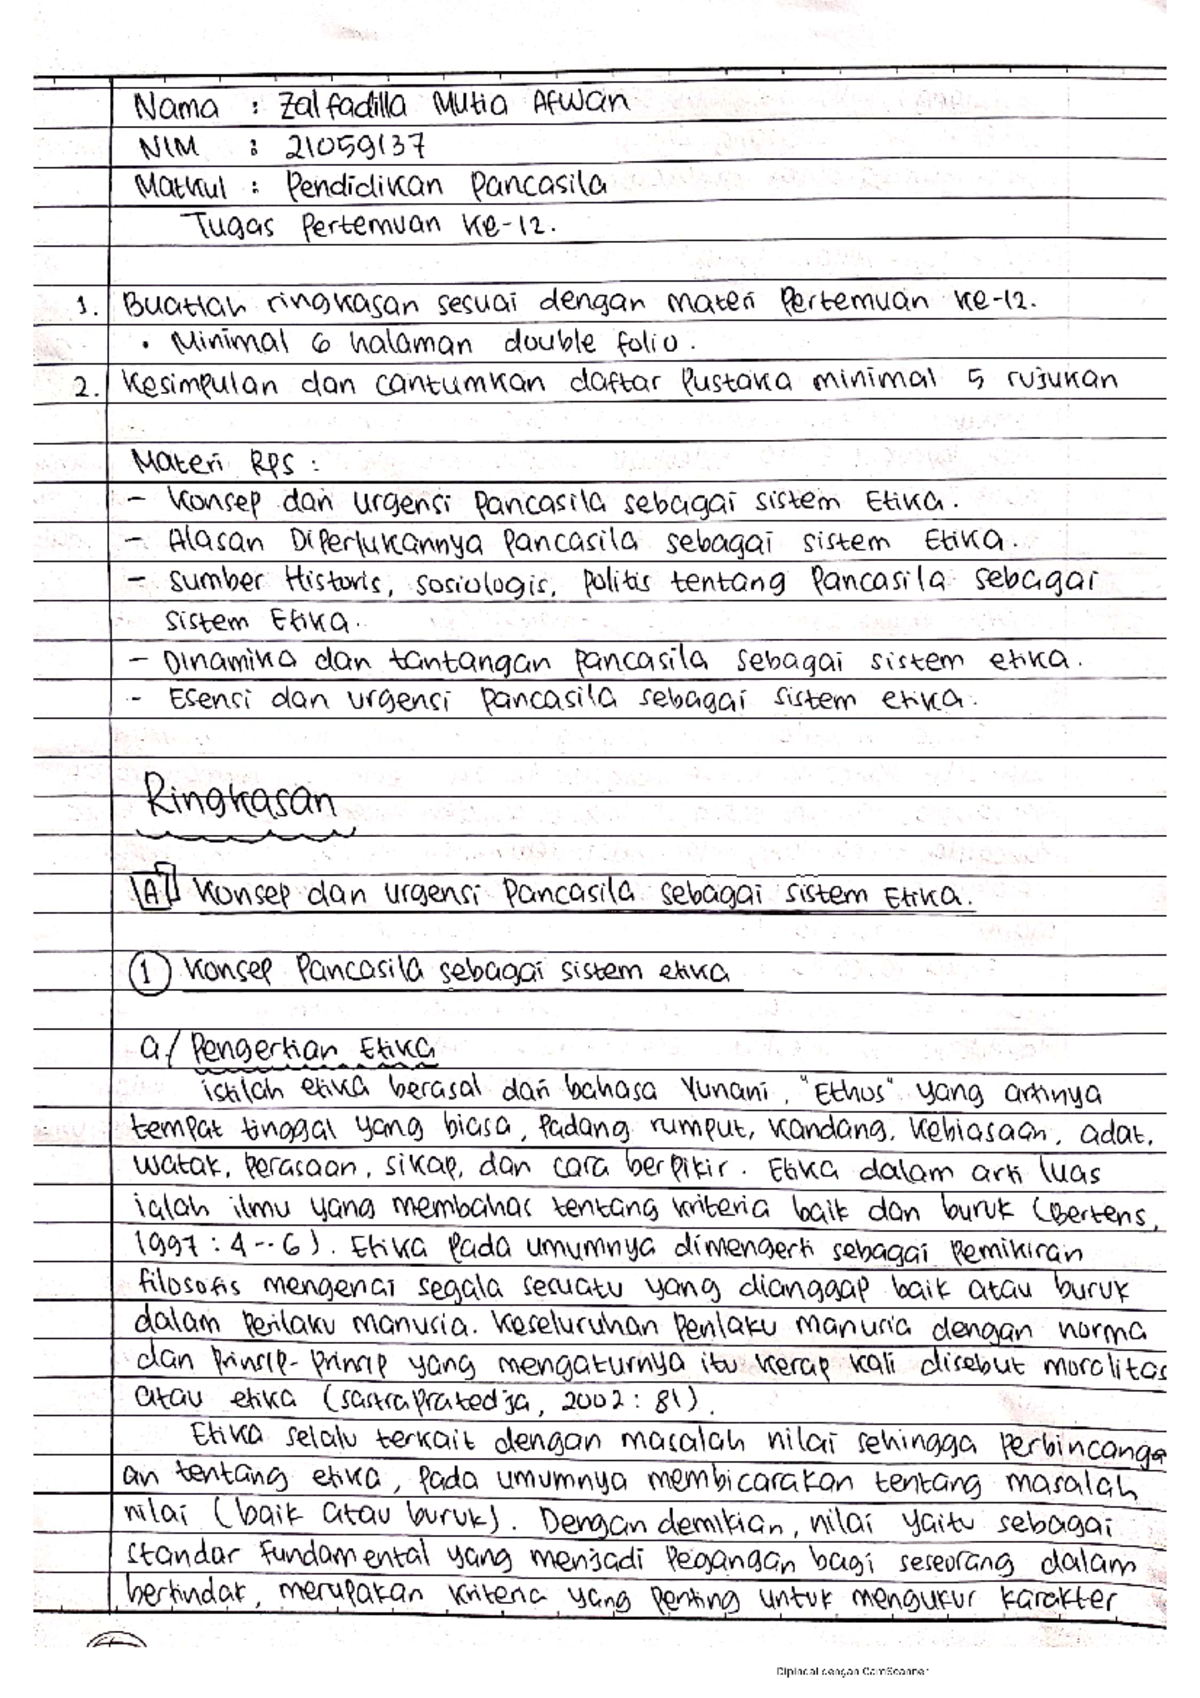 Nama : Zalfadilla Mutia Afwan
NIM : 21059137
Matkul : Pendidikan Pancasila
Tugas Pertemuan Ke-12.
1. Buatlah ringkasan sesuai dengan materi Pertemuan ke-12.
• Minimal 6 halaman double folio.
2. Kesimpulan dan cantumkan daftar Pustaka minimal 5 rujukan
Materi RPS :
- Konsep dan urgensi Pancasila sebagai sistem Etika.
- Alasan Diperlukannya Pancasila sebagai sistem Etika.
- Sumber Historis, sosiologis, politis tentang Pancasila sebagai
sistem Etika.
- Dinamika dan tantangan Pancasila sebagai sistem etika.
- Esensi dan urgensi Pancasila sebagai sistem etika.
Ringkasan
A Konsep dan urgensi Pancasila sebagai sistem Etika.
1 Konsep Pancasila sebagai sistem etika
a/ Pengertian Etika
istilah etika berasal dari bahasa Yunani, "Ethos" yang artinya
tempat tinggal yang biasa, Padang rumput, kandang, kebiasaan, adat,
watak, perasaan, sikap, dan cara berpikir. Etika dalam arti luas
ialah ilmu yang membahas tentang kriteria baik dan buruk (Bertens,
1997 : 4--6). Etika Pada umumnya dimengerti sebagai pemikiran
filosofis mengenai segala sesuatu yang dianggap baik atau buruk
dalam Perilaku manusia. Keseluruhan Perilaku manusia dengan norma
dan Prinsip-prinsip yang mengaturnya itu kerap kali disebut moralitas
atau etika (Sastrapratedja, 2002 : 81).
Etika selalu terkait dengan masalah nilai sehingga Perbincang
an tentang etika, Pada umumnya membicarakan tentang masalah
nilai (baik atau buruk). Dengan demikian, nilai yaitu sebagai
standar fundamental yang menjadi Pegangan bagi seseorang dalam
bertindak, merupakan kriteria yang Penting untuk mengukur karakter
Dipindai dengan CamScanner